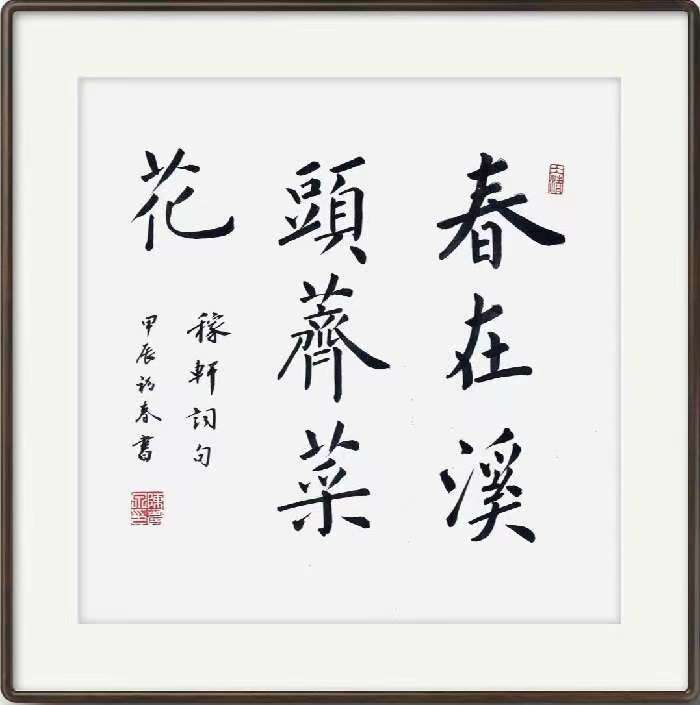 春在溪
頭薺菜
花
稼軒詞句
甲辰初春書